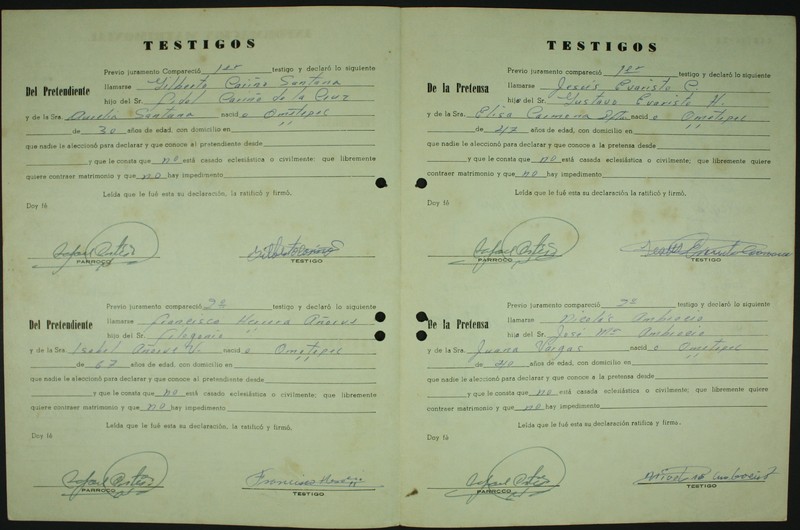 TESTIGOS
Previo juramento Compareció 1er testigo y declaró lo siguiente
Del Pretendiente
llamarse Gilberto Cariño Santana
hijo del Sr. Fidel Cariño de la Cruz
y de la Sra. Aurelia Santana nació o Ometepec
de 30 años de edad, con domicilio en " "
que nadie le aleccionó para declarar y que conoce al pretendiente desde
y que le consta que no está casado eclesiástica o civilmente; que libremente
quiere contraer matrimonio y que no hay impedimento
Leída que le fué esta su declaración, la ratificó y firmó.
Doy fé
PARROCO
TESTIGO
Previo juramento compareció 2o testigo y declaró lo siguiente
Del Pretendiente
llamarse Francisco Herrera Añorve
hijo del Sr. Filogonio "
y de la Sra. Isabel Añorve V. nació o Ometepec
de 67 años de edad, con domicilio en " "
que nadie le aleccionó para declarar y que conoce al pretendiente desde
y que le consta que no está casado eclesiástica o civilmente; que libremente
quiere contraer matrimonio y que no hay impedimento
Leída que le fué esta su declaración, la ratificó y firmó,
Doy fé
PARROCO
Francisco Herrera
TESTIGO
TESTIGOS
Previo juramento compareció 1er testigo y declaró lo siguiente
De la Pretensa
llamarse Jesús Evaristo C
hijo del Sr. Gustavo Evaristo H.
y de la Sra. Elisa Carmona nació o Ometepec
de 27 años de edad, con domicilio en " "
que nadie le aleccionó para declarar y que conoce a la pretensa desde
y que le consta que no está casado eclesiástica o civilmente; que libremente quiere
contraer matrimonio y que no hay impedimento
Leída que le fué esta su declaración la ratificó y firmó.
Doy fé
PARROCO
TESTIGO
Previo juramento compareció 2o testigo y declaró lo siguiente
De la Pretensa
llamarse Nicolás Ambrocio
hijo del Sr. José Ma Ambrocio
y de la Sra. Juana Vargas nació o Ometepec
de años de edad, con domicilio en " "
que nadie le aleccionó para declarar y que conoce a la pretensa desde
y que le consta que no está casada eclesiástica o civilmente; que libremente quiere
contraer matrimonio y que no hay impedimento
Leída que le fué esta su declaración, la ratificó y firmo.
Doy fé
PARROCO
TESTIGO